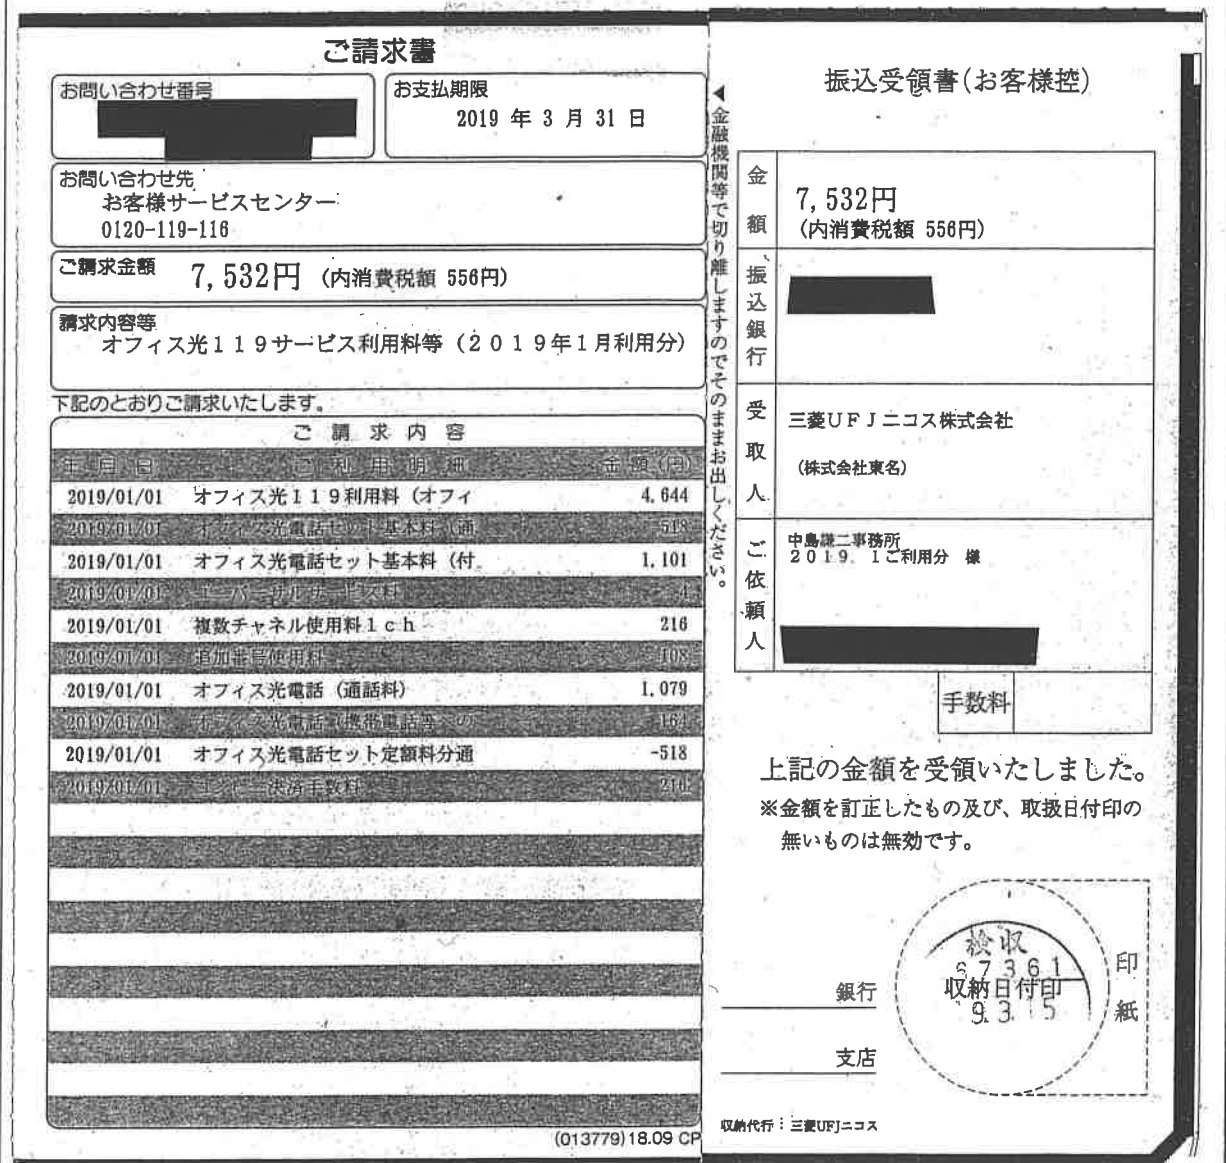 ご請求書
お問い合わせ番号
お支払期限
2019 年 3 月 31 日
お問い合わせ先
お客様サービスセンター
0120-119-116
ご請求金額 7,532円 (内消費税額 556円)
請求内容等
オフィス光119サービス利用料等（2019年1月利用分）
下記のとおりご請求いたします。
ご請求内容
年月日 ご利用明細 金額(円)
2019/01/01 オフィス光119利用料（オフィ 4,644
2019/01/01 オフィス光電話セット基本料（通 518
2019/01/01 オフィス光電話セット基本料（付 1,101
2019/01/01 ユニバーサルサービス料 4
2019/01/01 複数チャネル使用料1ch 216
2019/01/01 追加番号使用料 108
2019/01/01 オフィス光電話（通話料） 1,079
2019/01/01 オフィス光電話（携帯電話等への 164
2019/01/01 オフィス光電話セット定額料分通 -518
2019/01/01 決済手数料 216
(013779)18.09 CP
◀金融機関等で切り離しますのでそのままお出しください。
振込受領書(お客様控)
金額
7,532円
(内消費税額 556円)
振込銀行
受取人
三菱UFJニコス株式会社
(株式会社東名)
ご依頼人
中島謙二事務所
2019. 1ご利用分 様
手数料
上記の金額を受領いたしました。
※金額を訂正したもの及び、取扱日付印の
無いものは無効です。
検収
67361
収納日付印
9.3.15
印紙
銀行
支店
収納代行：三菱UFJニコス